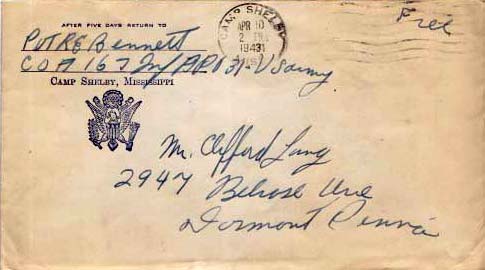 AFTER FIVE DAYS RETURN TO
Pvt RE Bennett
Co A 167 Inf APO 31-US army
CAMP SHELBY, MISSISSIPPI
CAMP SHELBY
APR 10
2 PM
1943
MISS.
Free
Mr. Clifford Lang
2947 Belrose Ave
Dormont Penna